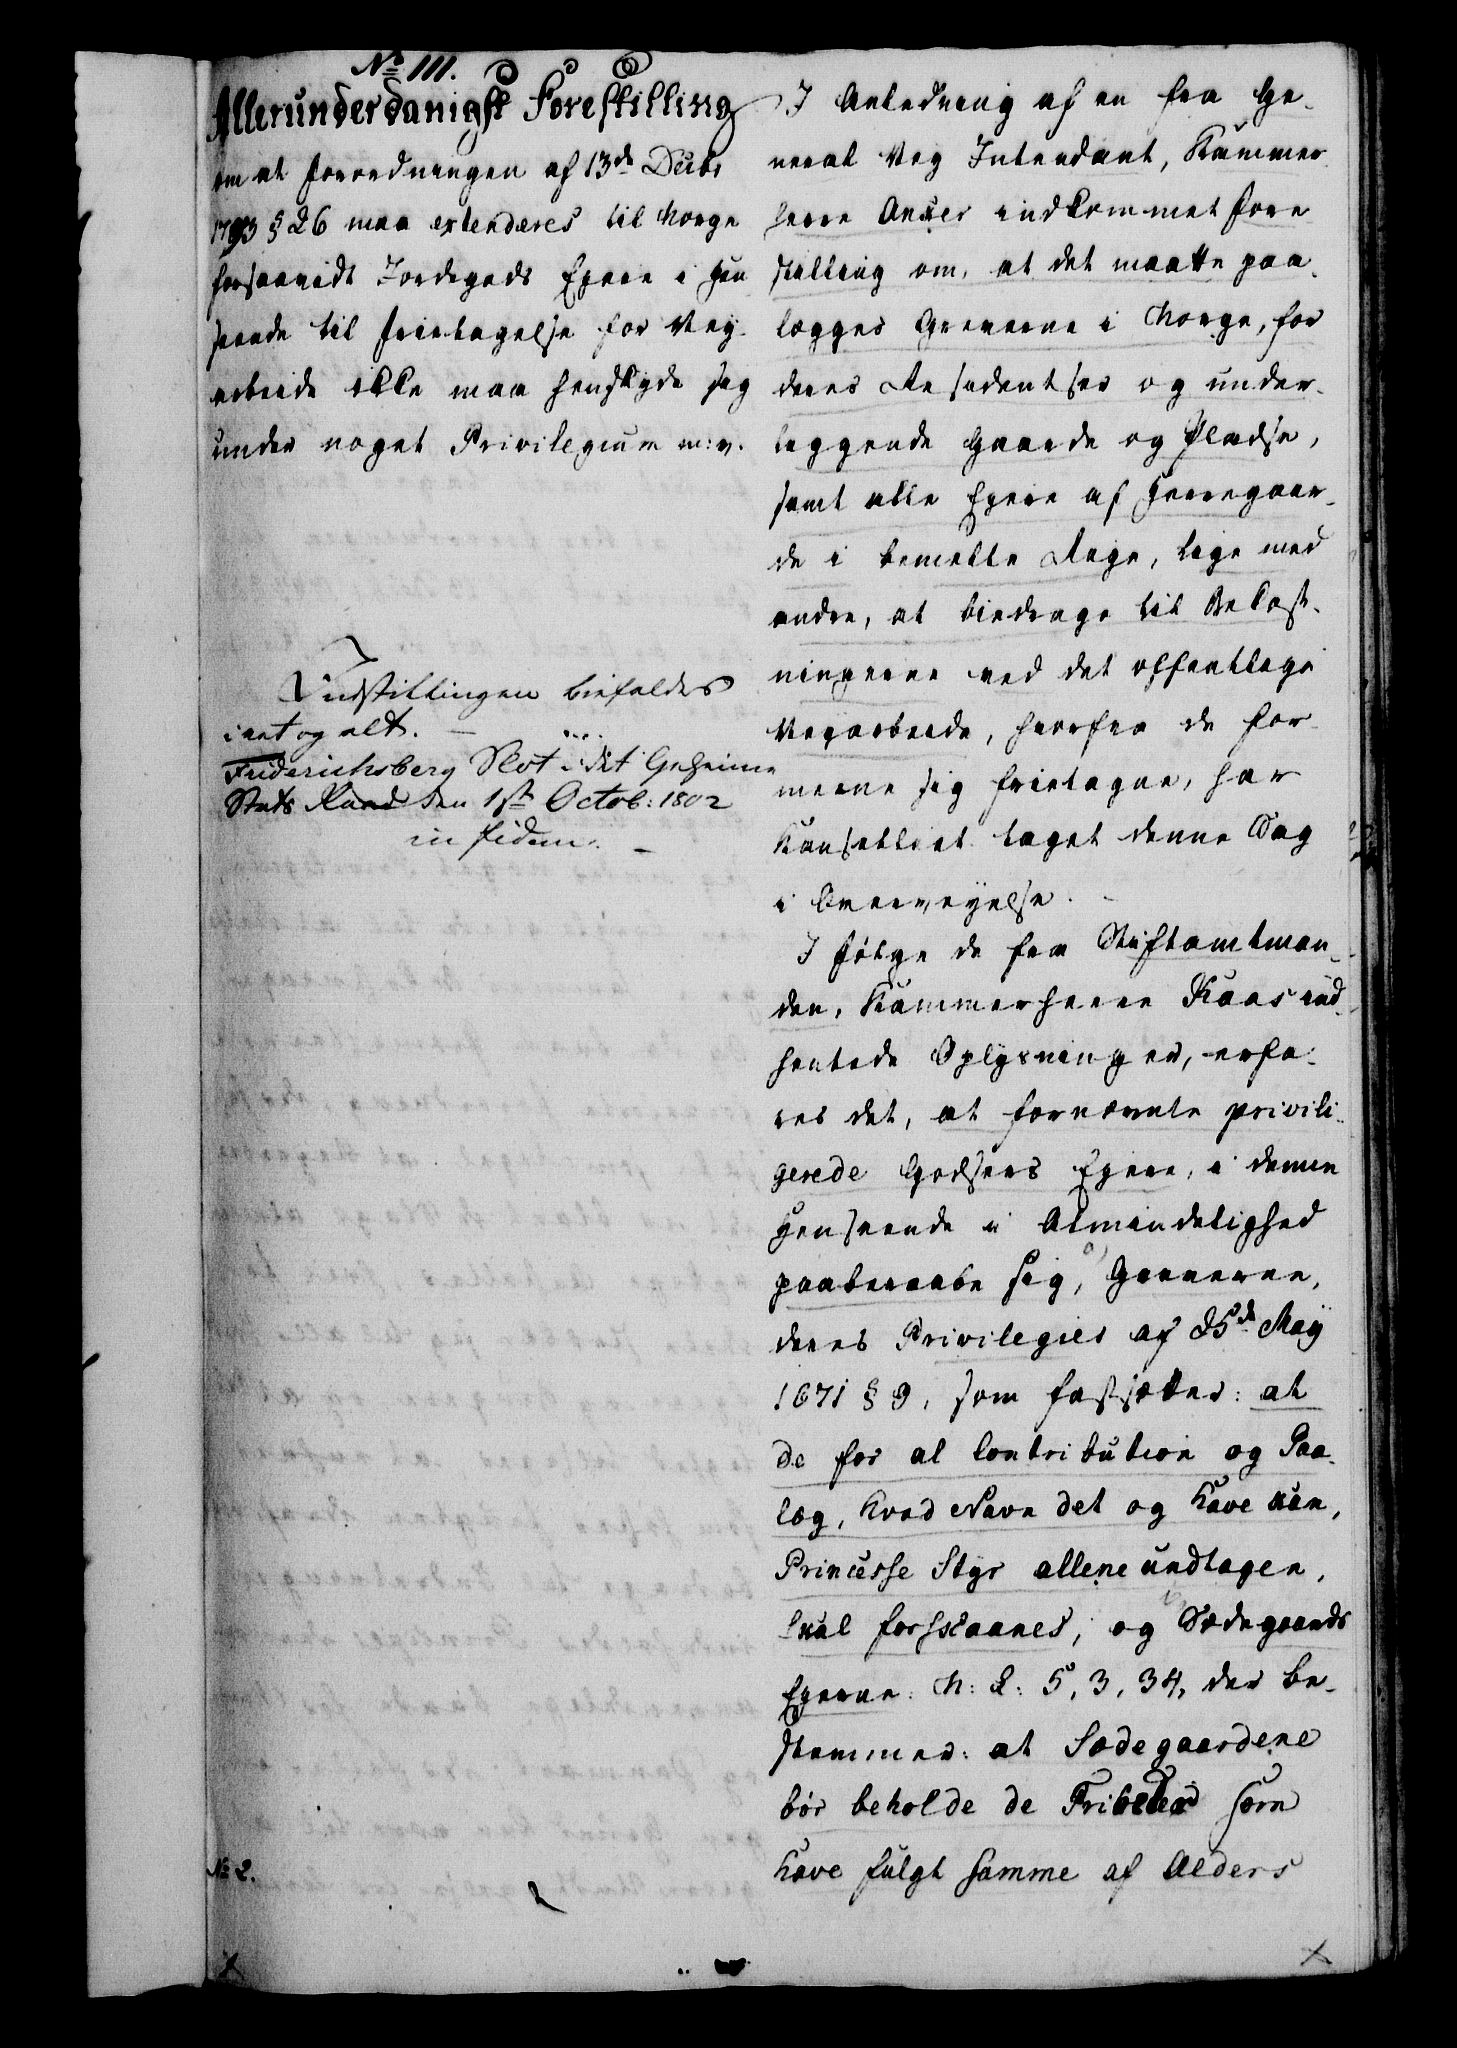 No 111.
Allerunderdanigst Forestilling
om at Forordningen af 13de Decbr
1793 § 26 maa extenderes til Norge
forsaavidt Jordegods Eyere i Hen
seende til Frietagelse for Vey
arbeide ikke maa henskyde sig
under noget Privilegium m: v.
Indstillingen biefaldes
i eet og alt. —
Friderichsberg Slot i det Geheime
Stats Raad den 1ste Octob: 1802
in fidem. —
No 2.
I Anledning af en fra Ge-
neral Vey Intendant, Kammer
herre Anker indkommet Fore
stilling om, at det maatte paa-
lægges Greverne i Norge, for
deres Residentser og under-
liggende Gaarde og Pladse,
samt alle Eyere af Herregaar-
de i bemelte Rige, lige med
andre, at bidrage til Bekost-
ningerne ved det offentlige
Veyarbeide, hvorfra de for-
meene sig frietagne, har
Kanselliet taget denne Sag
i Overveyelse. -
I følge de fra Stiftamtman-
den, Kammerherre Kaas ind-
hentede Oplysninger, erfa-
res det, at fornævnte privili-
gerede Godsers Eyere, i denne
Henseende i Almindelighed
paaberaabe sig, Greverne,
deres Privilegier af 25de May
1671 § 9, som fastsætter: at
de for al Contribution og Paa-
læg, hvad Navn det og have kan,
Princesse Styr allene undtagen,
skal forskaanes, og Sædegaards
Eyerne: N: L: 5, 3, 34, der be-
stemmer: at Sædegaardene
bør beholde de Friheder som
have fulgt samme af Alders